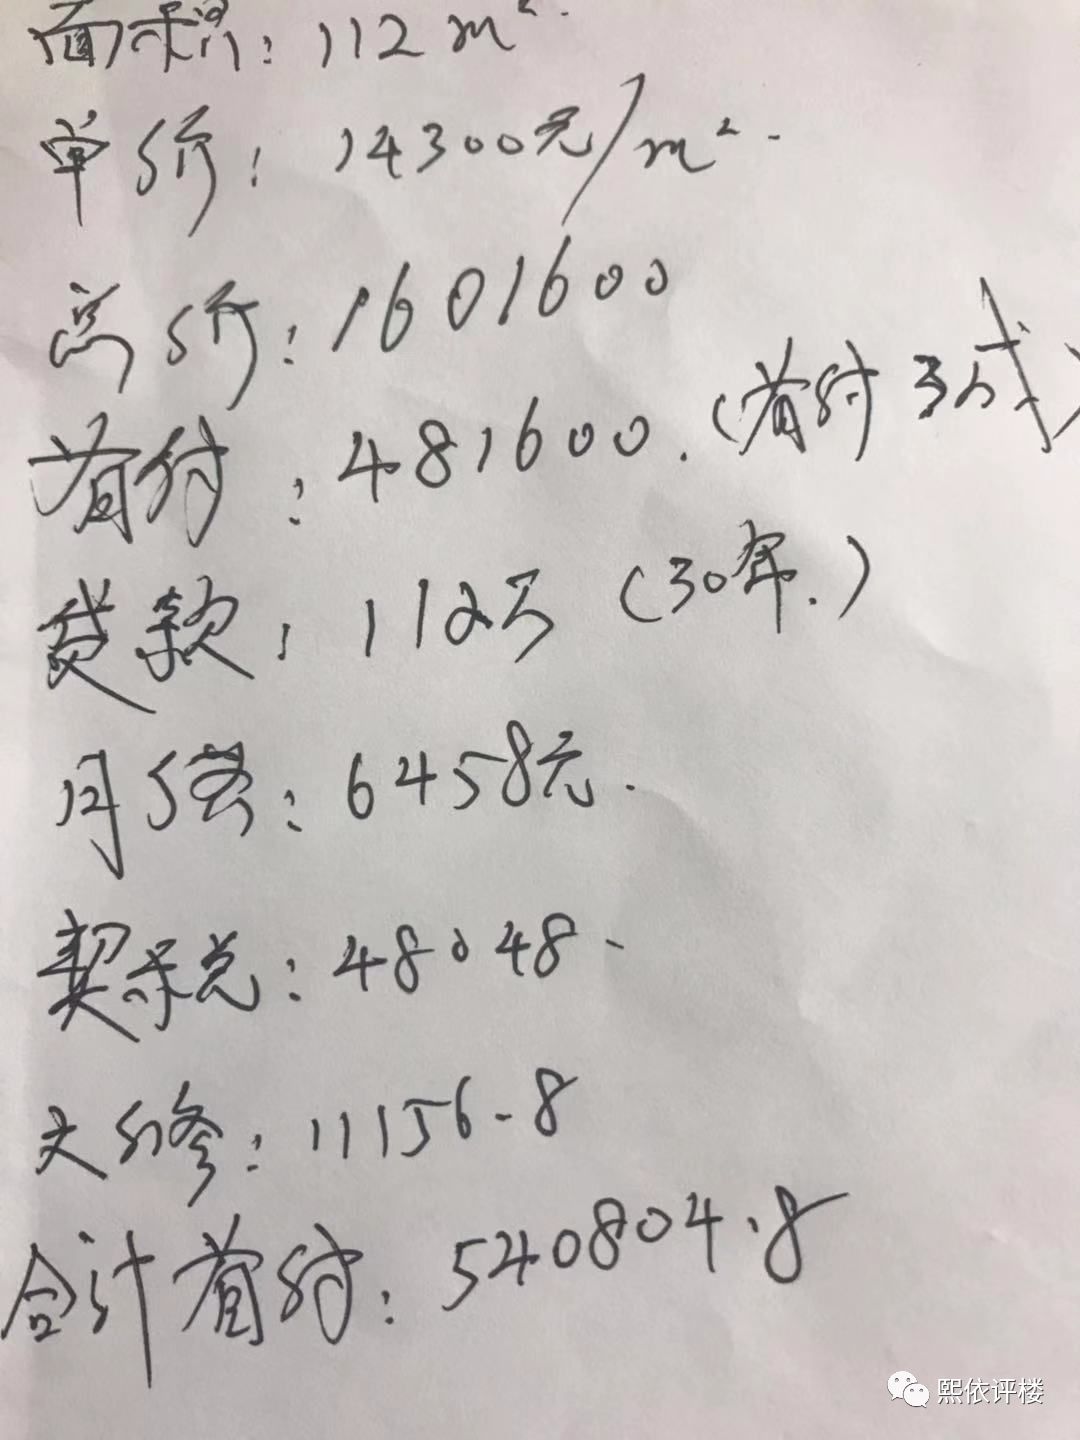 面积：112m².
单价：14300元/m².
总价：1601600
首付：481600.（首付3成）
贷款：112万（30年.）
月供：6458元.
契税：48048.
大修：11156.8
合计首付：540804.8
熙依评楼